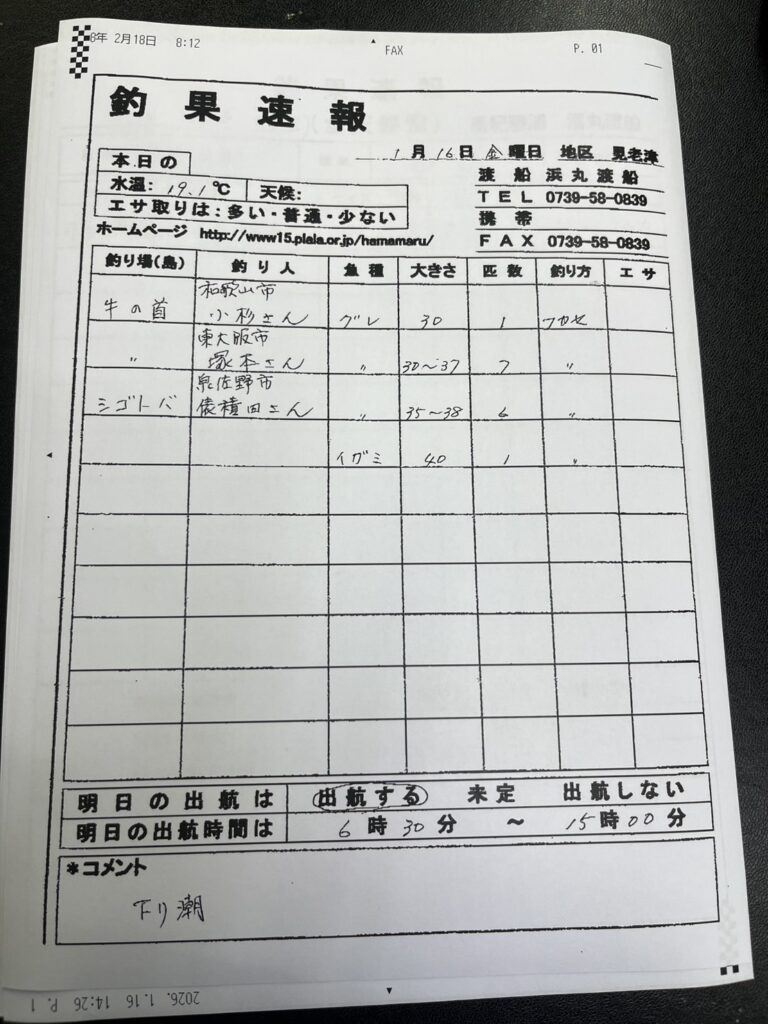 8年 2月18日 8:12 FAX P. 01
釣果速報
1月16日 金曜日 地区 見老津
本日の
水温: 19.1℃ 天候:
エサ取りは:多い・普通・少ない
渡船 浜丸渡船
TEL 0739-58-0839
携帯
FAX 0739-58-0839
ホームページ http://www15.plala.or.jp/hamamaru/
釣り場(島) 釣り人 魚種 大きさ 匹数 釣り方 エサ
和歌山市
牛の首 小杉さん グレ 30 1 フカセ
東大阪市
〃 塚本さん 〃 30~37 7 〃
泉佐野市
シゴトバ 俵積田さん 〃 35~38 6 〃
イガミ 40 1 〃
明日の出航は 出航する 未定 出航しない
明日の出航時間は 6時30分 ~ 15時00分
*コメント
下り潮
2026. 1.16 14:26 P. 1